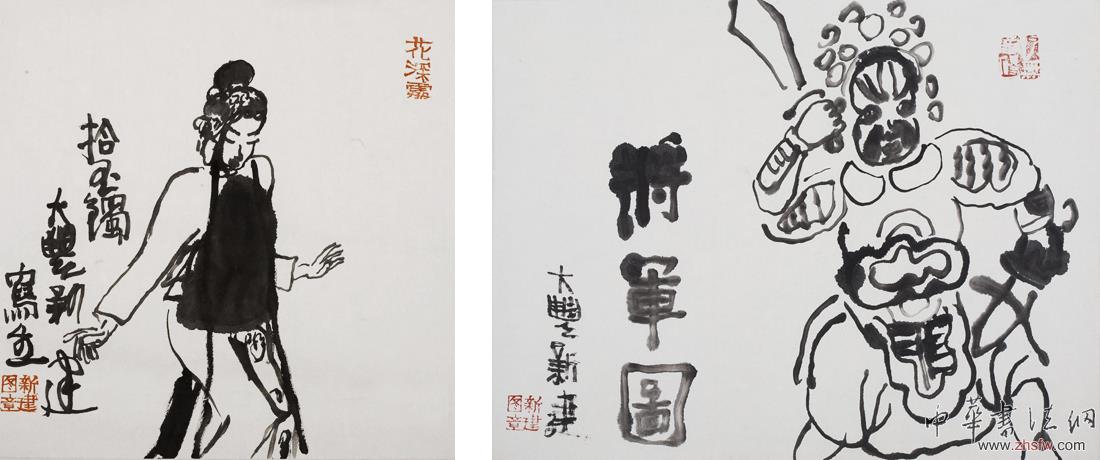 花深
拾玉鐲
大豐新建
寫
新建
图章
將軍圖
大豐新建
新建
图章
中華書法網
www.zhsfw.com